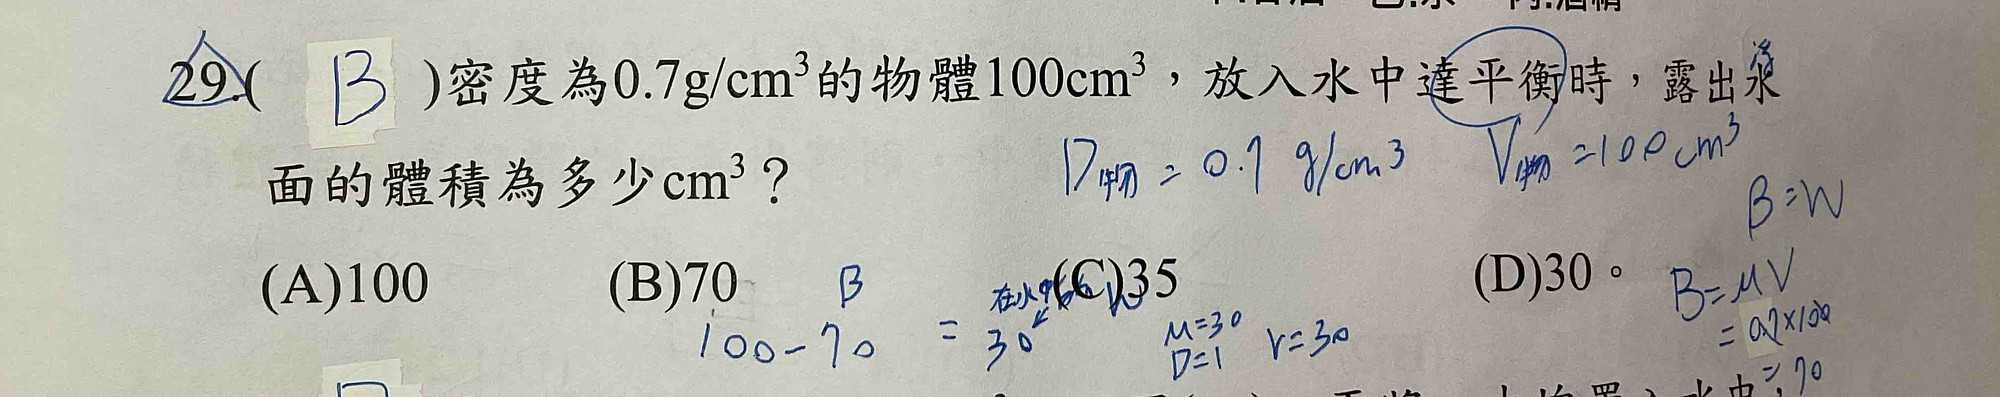 29.( B )密度為0.7g/cm³的物體100cm³，放入水中達平衡時，露出水
面的體積為多少cm³？
D物 = 0.7 g/cm3 V物 = 100cm³
B=W
(A)100 (B)70 (C)35 (D)30。
B=MV
B
100-70 = 30
M=30
D=1
V=30
= 0.7×100
= 70